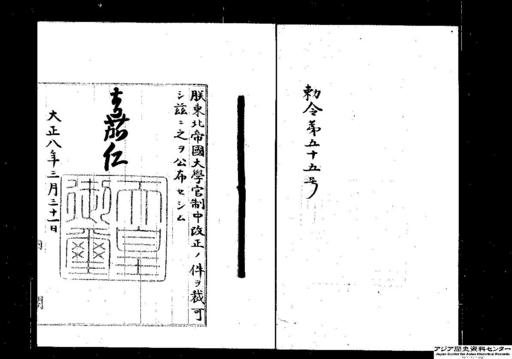 勅令第五十五号
朕東北帝國大學官制中改正ノ件ヲ裁可
シ茲ニ之ヲ公布セシム
嘉仁
天皇御璽
大正八年三月三十一日
内閣
アジア歴史資料センター
Japan Center for Asian Historical Records